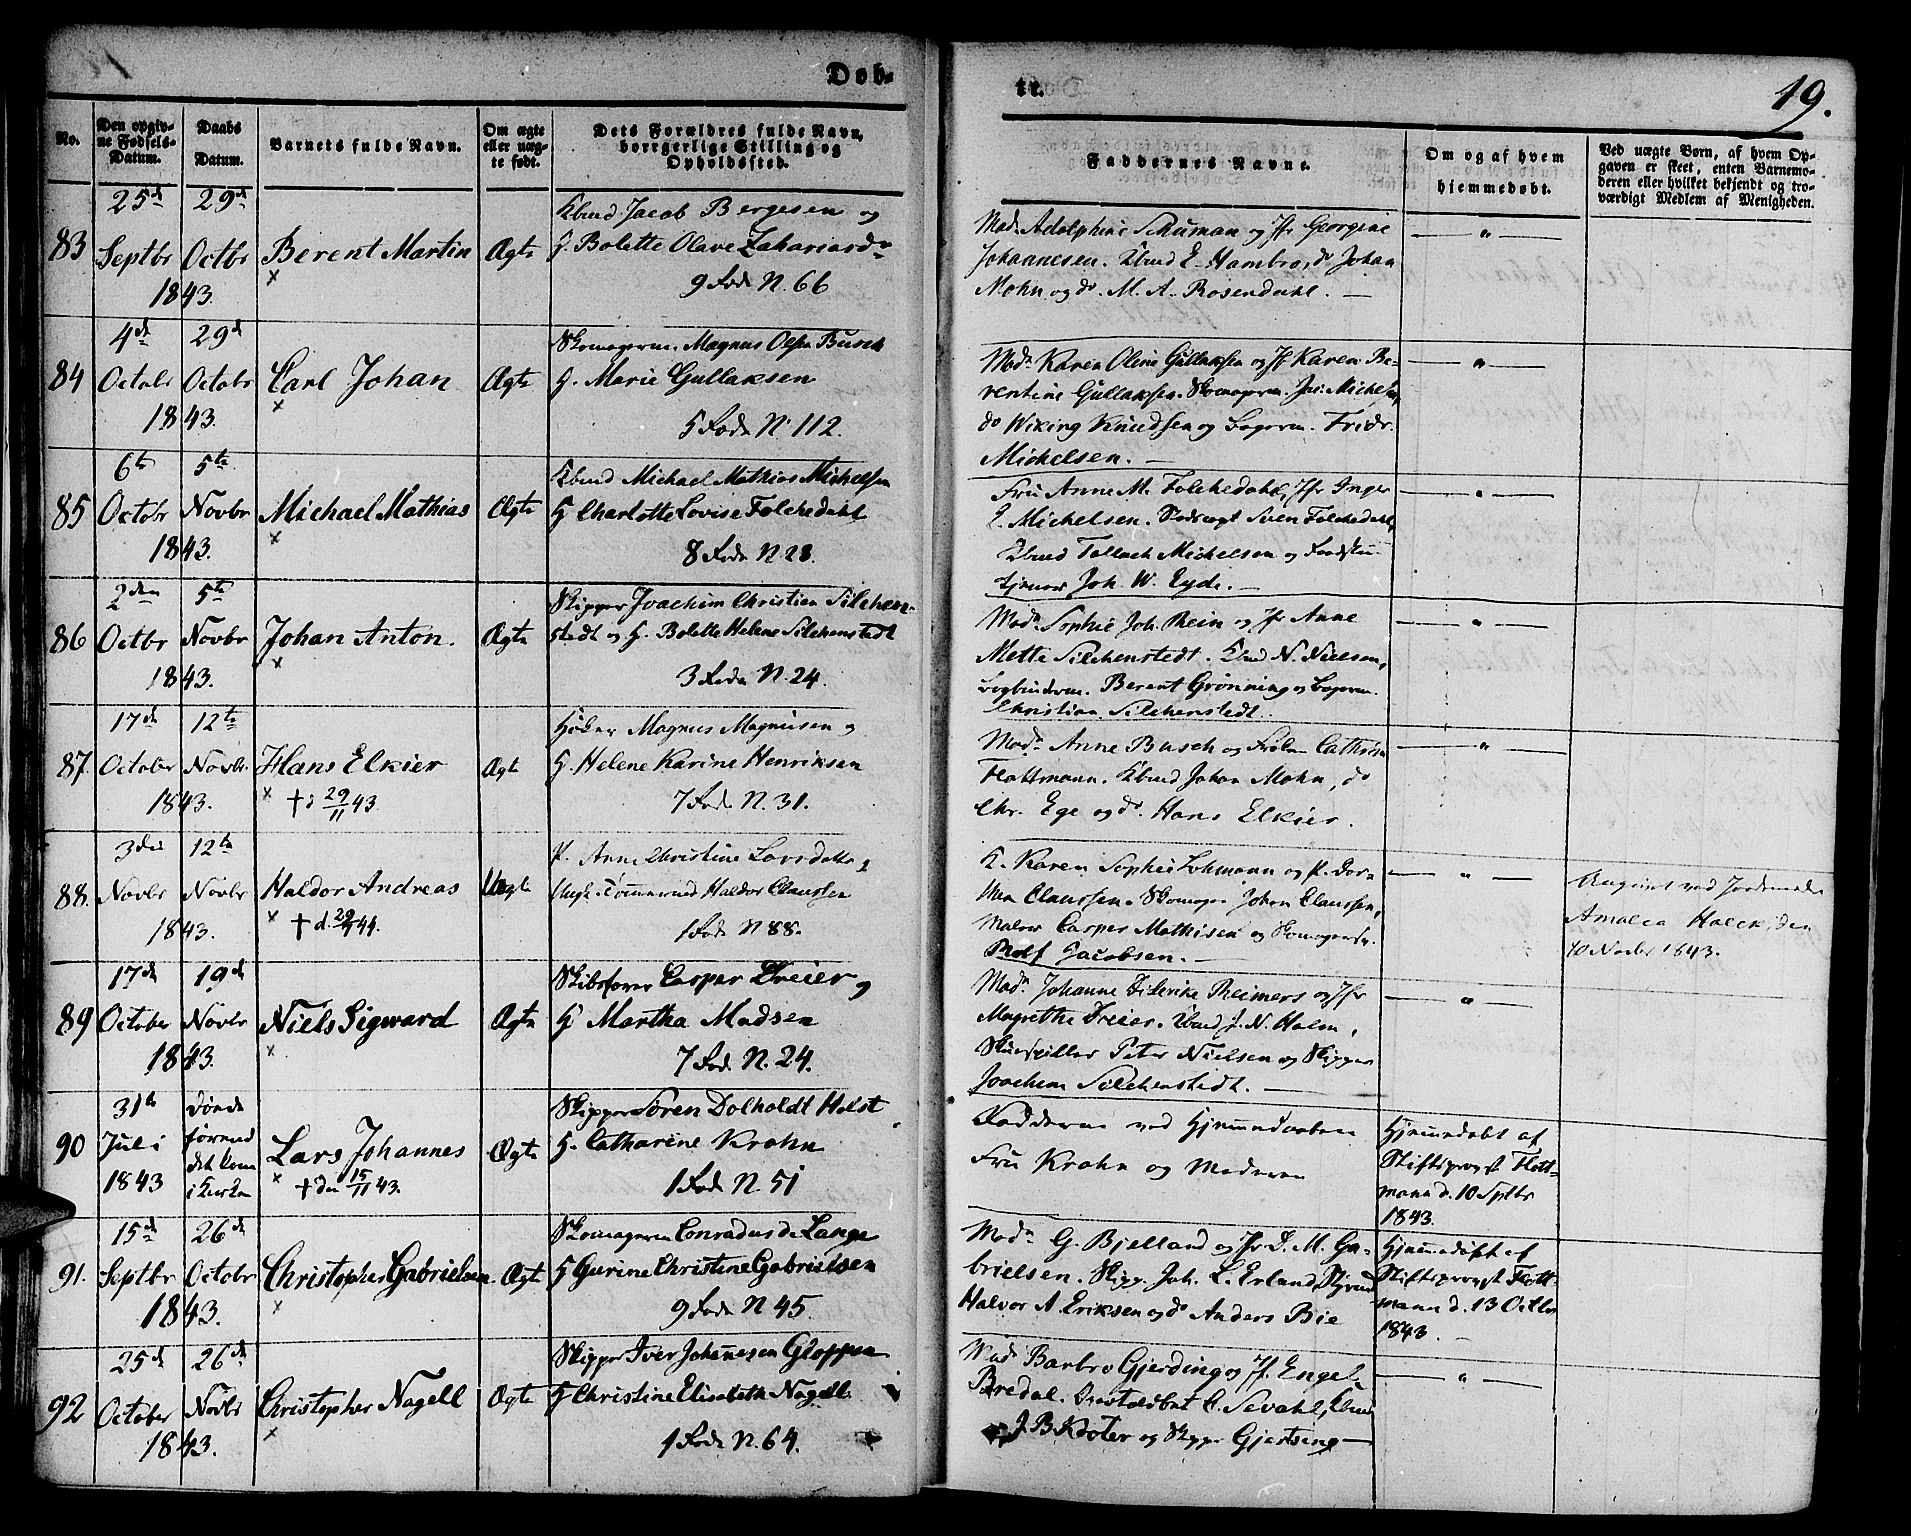 Døb-
No.
Den opgiv-
ne Fødsels-
Datum.
Daabs
Datum.
Barnets fulde Navn.
Om ægte
eller uæg-
te født.
Dets Forældres fulde Navn,
borgerlige Stilling og
Opholdssted.
83
25de
Septbr
29de
Octbr
1843.
Berent Martin
Ægte
Kbmd Jacob Bergesen og
H. Bolette Olave Zahariasdr
9 Rode N. 66
84
4de
Octobr
29de
Octobr
1843.
Carl Johan
Ægte
Skomagerm. Magnus Olsen Busch
H. Marie Gullaksen
5 Rode N. 112.
85
6te
Octobr
5te
Novbr
1843.
Michael Mathias
Ægte
Kbmd Michael Mathias Michelsen
H Charlotte Lovise Folchedahl
8 Rode N. 28.
86
2den
Octbr
5te
Novbr
1843.
Johan Anton.
Ægte
Skipper Joachim Christian Silchen-
stedt og H. Bolette Helene Silchenstedt
3 Rode N. 24.
87.
17de
October
12te
Novbr.
1843.
Hans Elkier
† d 29/11 43.
Ægte
Høker Magnus Magnusen og
H. Helene Karine Henriksen
7 Rode N. 31.
88.
3die
Novbr
12te
Novbr
1843.
Haldor Andreas
Uægte
P. Anne Christine Larsdatter og
Ungk. Tømmermd Haldor Claussen
1 Rode N 88.
89
17de
October
19de
Novbr
1843.
Niels Sigward
Ægte
Skibsfører Casper Dreier og
H Martha Madsen
7 Rode N. 24.
90
31te
Juli
1843
Døde
førend
det kom
i Kirken
Lars Johannes
† den 15/11 43.
Ægte
Skipper Søren Dolholdt Holst
H. Catharine Krohn
1 Rode N. 51
91.
15de
Septbr
26de
Octobr
1843.
Christopher Gabrielsen.
Ægte
Skomagerm Conradus de Lange
H Gurine Christine Gabrielsen
9 Rode N 45.
92
25de
October
26de
Novbr
1843.
Christopher Nagell
Ægte
Skipper Iver Johannesen Gloppen
H Christine Elisabeth Nagell.
1 Rode N. 64.
er.
19.
Faddernes Navne.
Om og af hvem
hjemmedøbt.
Ved uægte Børn, af hvem Op-
gaven er skeet, enten Barnemo-
deren eller hvilket bekjendt og tro-
værdigt Medlem af Menigheden.
Mad. Adolphine Schuman og Jfr Georgine
Johannesen. Kbmd E. Hambro, do Johan
Mohn og do. M. A. Rosendahl. —
— " —
Mad. Karen Oline Gullaksen og Jf Karen Be-
rentine Gullaksen. Skomagerm. Jac. Michelsen,
do Wiking Knudsen og Bagerm. Fridr.
Michelsen. —
— " —
Fru Anne M. Folchedahl, Jfr Inger
E. Michelsen. Sven Folchedahl,
Kbmd Tollach Michelsen og
Joh. W. Eyde. —
— " —
Mad. Sophie Joh. Rein og Jfr Anne
Mette Silchenstedt. Kbmd N. Nielsen,
Bogbinderm. Berent Grønning og Bagerm.
Christian Silchenstedt.
— " —
Mad. Anne Busch og Frøken Cathrine
Flottmann. Kbmd Johan Mohn, do
Chr. Ege og do. Hans Elkier.
— " —
K. Karen Sophie Lohmann og P. Dor-
thea Claussen. Skomagr. Johan Claussen,
Maler Casper Mathisen og Skomagersv.
Rolf Jacobsen. —
— " —
Angivet ved Jordemoder
Amalea Holck, den
10 Novbr 1843.
Mad. Johanne Diderike Reimers og Jfr
Magrethe Dreier. Kbmd J. N. Holm,
Skuespiller Peter Nielsen og Skipper
Joachim Silchenstedt. —
— " —
Fadderne ved Hjemmedaaben
Fru Krohn og Moderen
Hjemmedøbt af
Stiftsprovst Flott-
mann d. 10 Septbr
1843.
Mad. G. Bjelland og Jfr D. M. Ga-
brielsen. Skipp. Joh. L. Erland, Styrmd
Halvor A. Eriksen og do Anders Bie
Hjemmedøbt af
Stiftsprovst Flott-
mann d. 13 Octbr
1843. —
Mad Barbro Gjerding og Jf. Engel
Bredal. C. Sevahl, Kbmd
J. B Kroter og Skipp. Gjertsing —
— " —